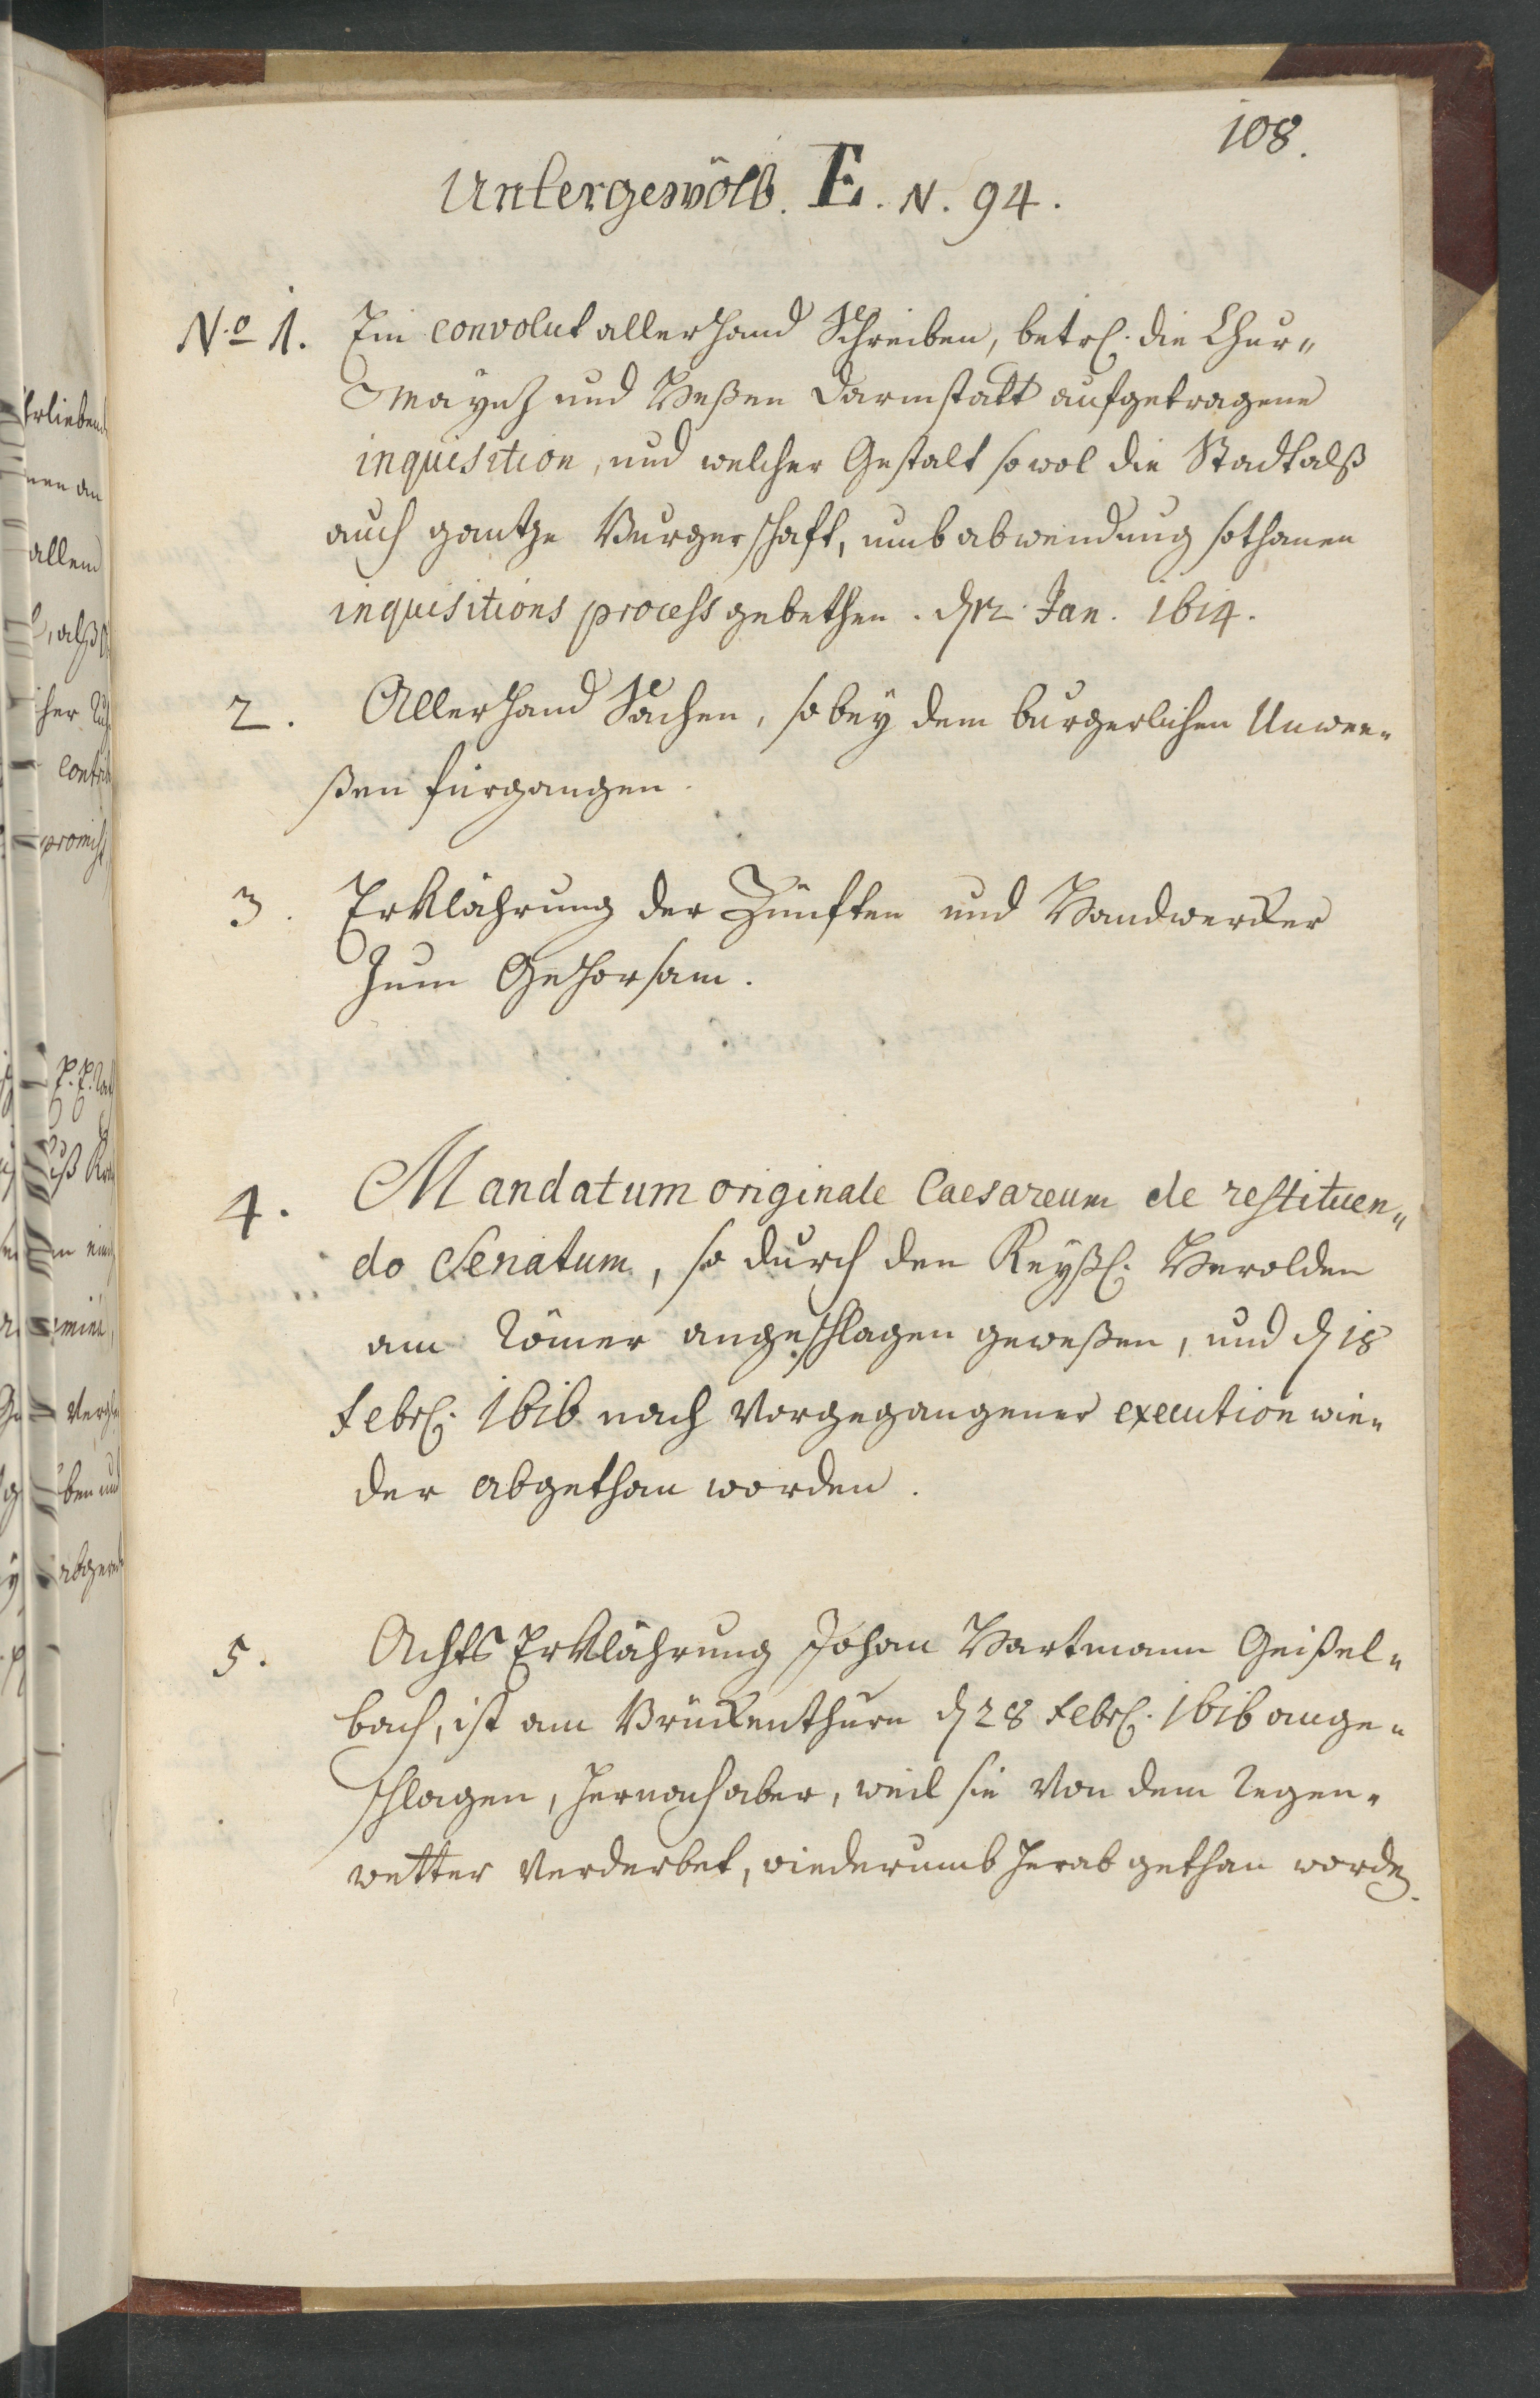 108.
Untergewölb. E. N. 94.
No 1. Ein convolut allerhand Schreiben, betrl. die Chur„
Mayntz und Heßen Darmstatt aufgetragene
inquisition, und welcher Gestalt sowol die Stadt alß
auch gantze Burgerschafft, umb abwendung sothanen
inquisitions process gebethen. d 12. Jan. 1614.
2. Allerhand Sachen, so bey dem burgerlichen Unwee„
ßen fürgangen.
3. Erklährung der Zünfften und Handwercker
zum Gehorsam.
4. Mandatum originale Caesareum de restituen„
do Senatum, so durch den Keyßl. Herolden
am Römer angeschlagen geweßen, und d 18
Febrl. 1616 nach vorgegangener execution wie„
der abgethan worden.
5. Achts Erklährung Johan Hartmann Geißel„
bach, ist am Brückenthurn d 28 Febrl. 1616 ange„
schlagen, hernach aber, weil sie von dem Regen„
wetter verderbet, wiederumb herab gethan worden.